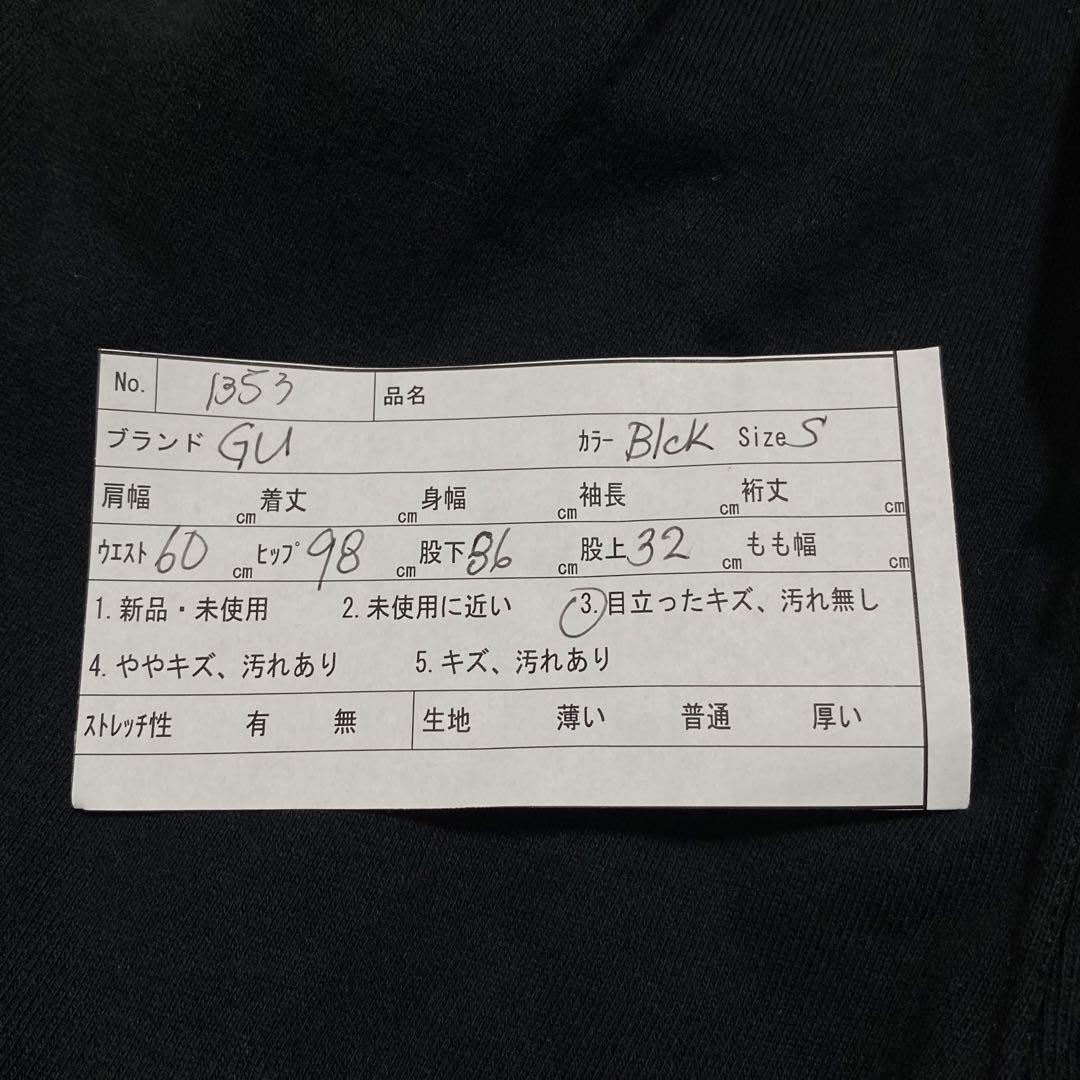 No. 1353 品名
ブランド GU カラー Blck Size S
肩幅 cm 着丈 cm 身幅 cm 袖長 cm 裄丈 cm
ウエスト 60 cm ヒップ 98 cm 股下 86 cm 股上 32 cm もも幅 cm
1. 新品・未使用 2. 未使用に近い 3. 目立ったキズ、汚れ無し
4. ややキズ、汚れあり 5. キズ、汚れあり
ストレッチ性 有 無 生地 薄い 普通 厚い